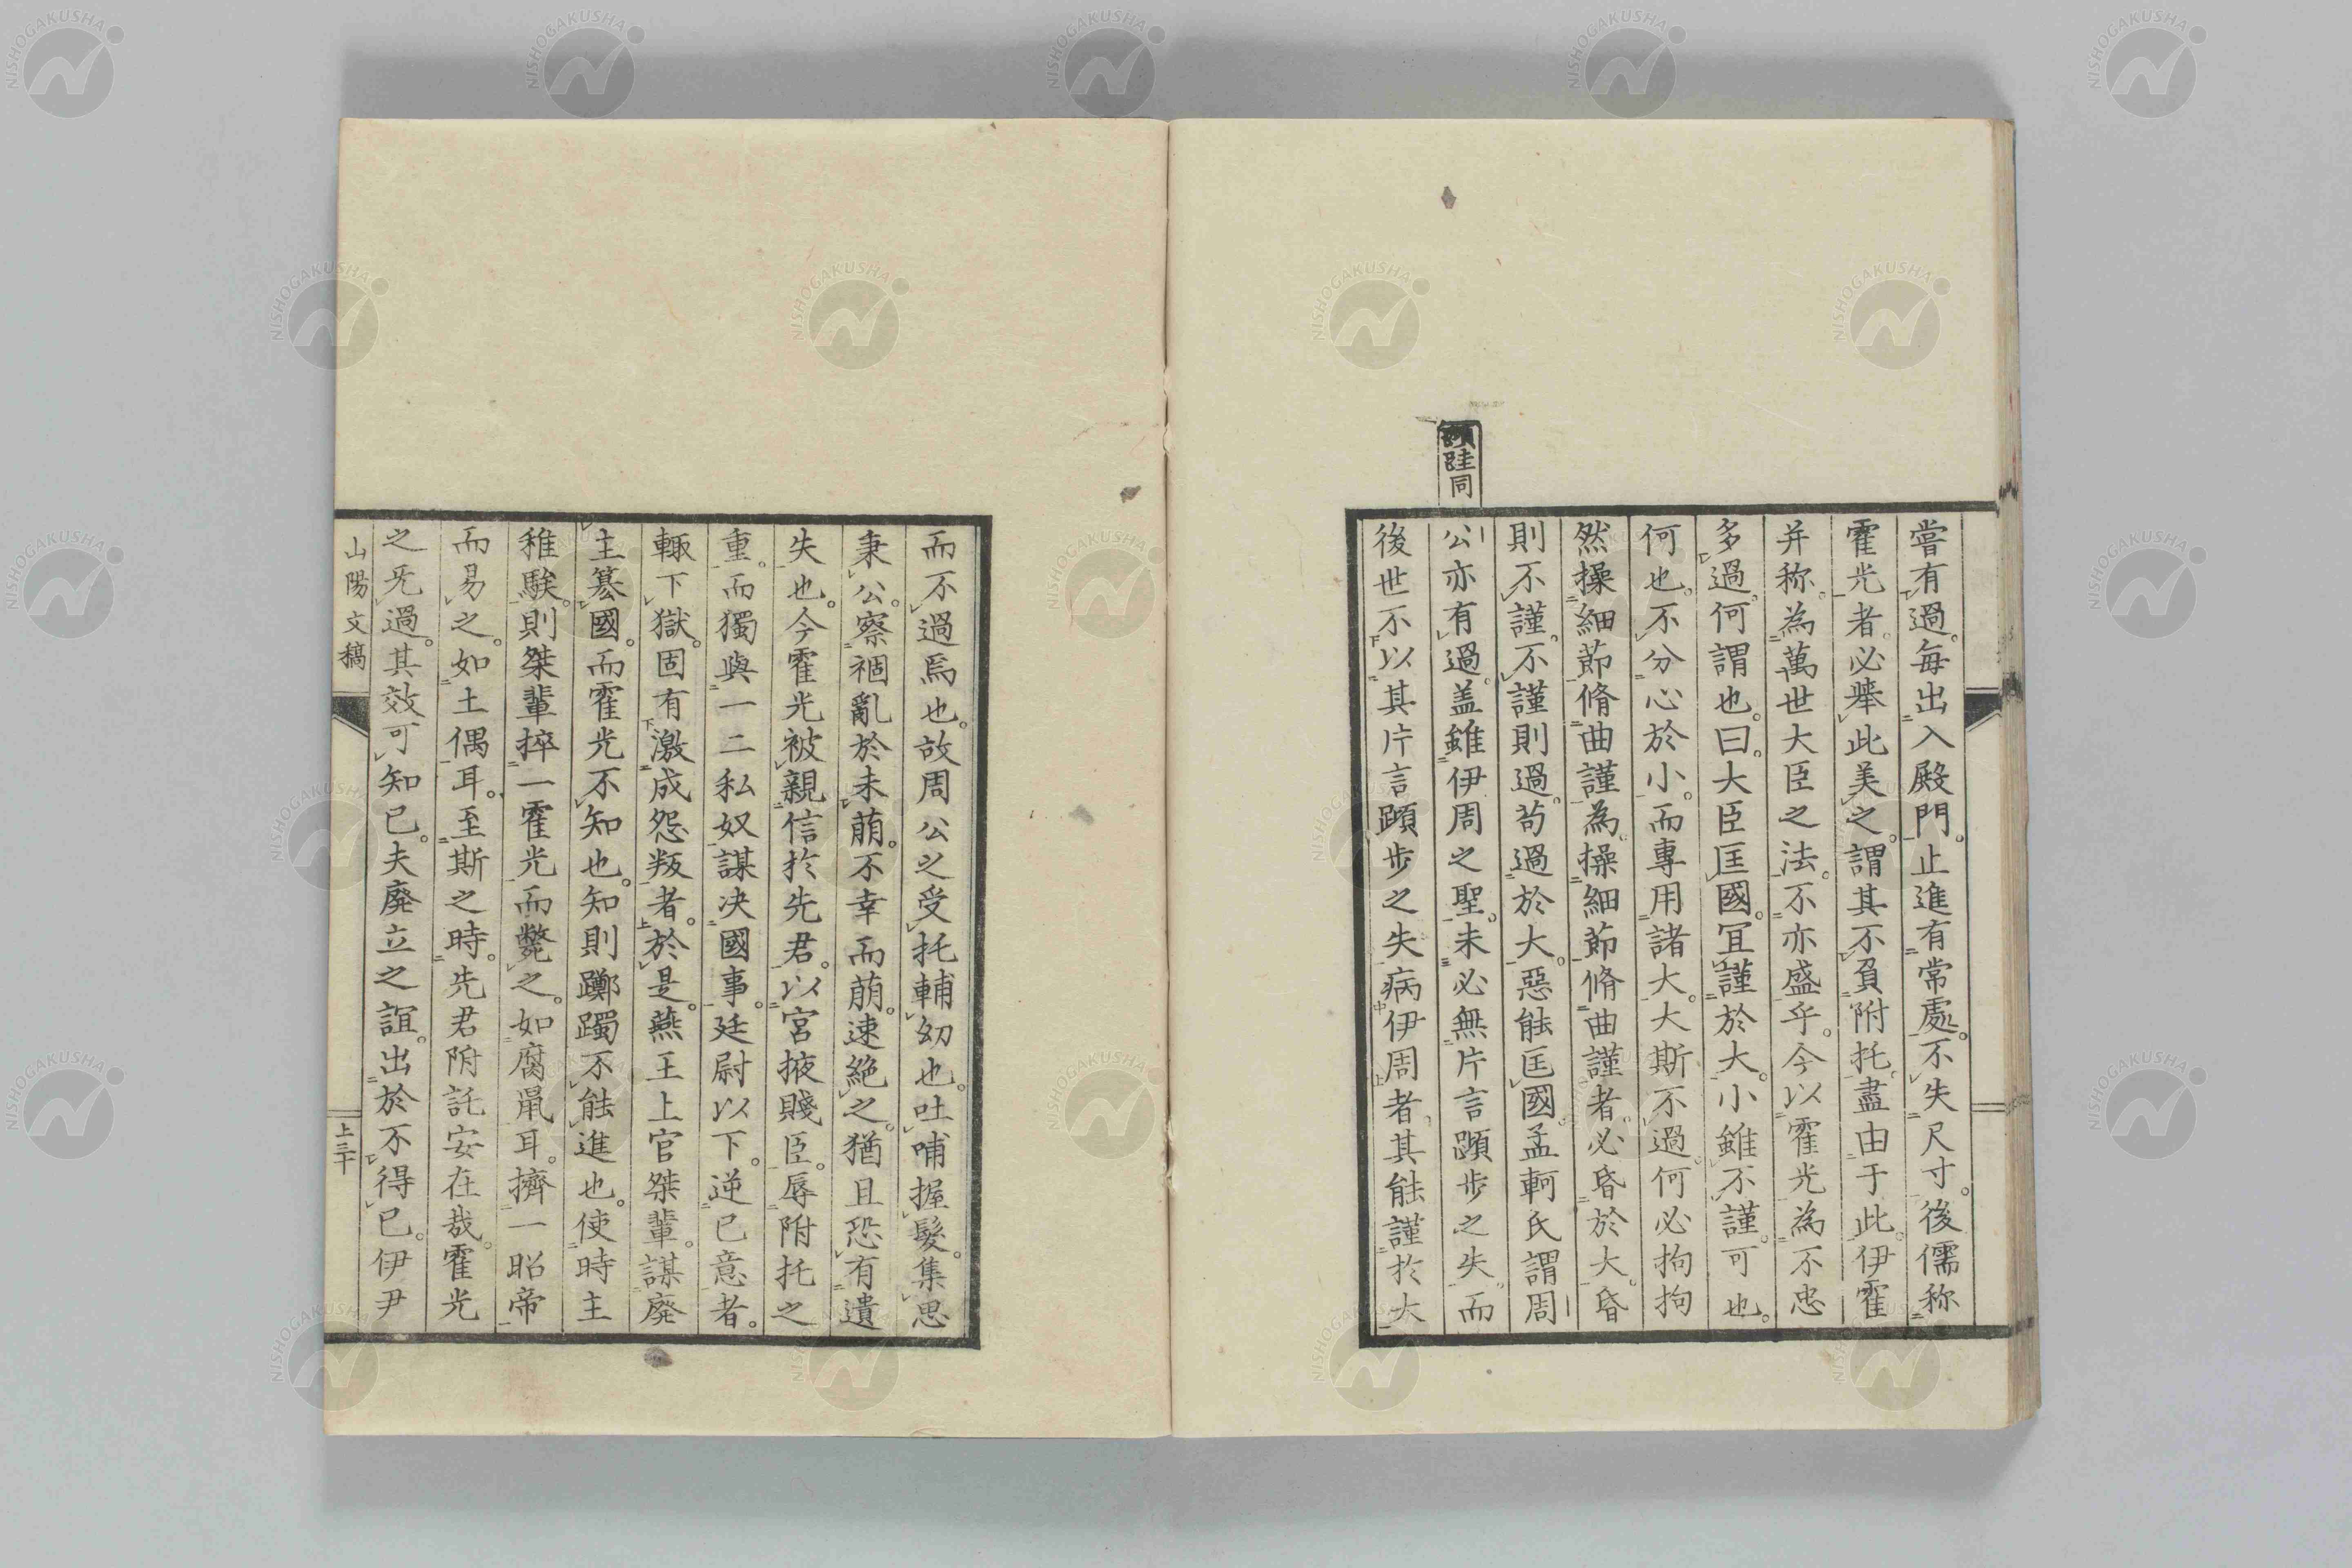 嘗有過。每出入殿門。止進有常處。不失尺寸。後儒称
霍光者。必舉此美之。謂其不負附托。盡由于此。伊霍
并称。為萬世大臣之法。不亦盛乎。今以霍光為不忠
多過。何謂也。曰。大臣匡國。冝謹於大。小雖不謹。可也。
何也。不分心於小。而專用諸大。大斯不過。何必拘拘
然操細節脩曲謹為。操細節脩曲謹者。必昏於大。昏
則不謹。不謹則過。苟過於大。惡能匡國。孟軻氏謂周
公亦有過。盖雖伊周之聖。未必無片言顕步之失。而
後世不以其片言顕步之失病伊周者。其能謹於大
跬同
而不過焉也。故周公之受托輔幼也。吐哺握髮。集思
秉公。察禍亂於未萠。不幸而萠。速絶之。猶且恐有遺
失也。今霍光被親信於先君。以宮掖賤臣。辱附托之
重。而獨與一二私奴謀决國事。廷尉以下。逆已意者。
輙下獄。固有激成怨叛者。於是。燕王上官桀輩。謀廢
主簒國。而霍光不知也。知則躑躅不能進也。使時主
稚騃。則桀輩捽一霍光而斃之。如腐鼠耳。擠一昭帝
而易之。如土偶耳。至斯之時。先君附託安在哉。霍光
之旡過。其效可知已。夫廢立之誼。出於不得已。伊尹
山陽文稿
上三十
NISHOGAKUSHA